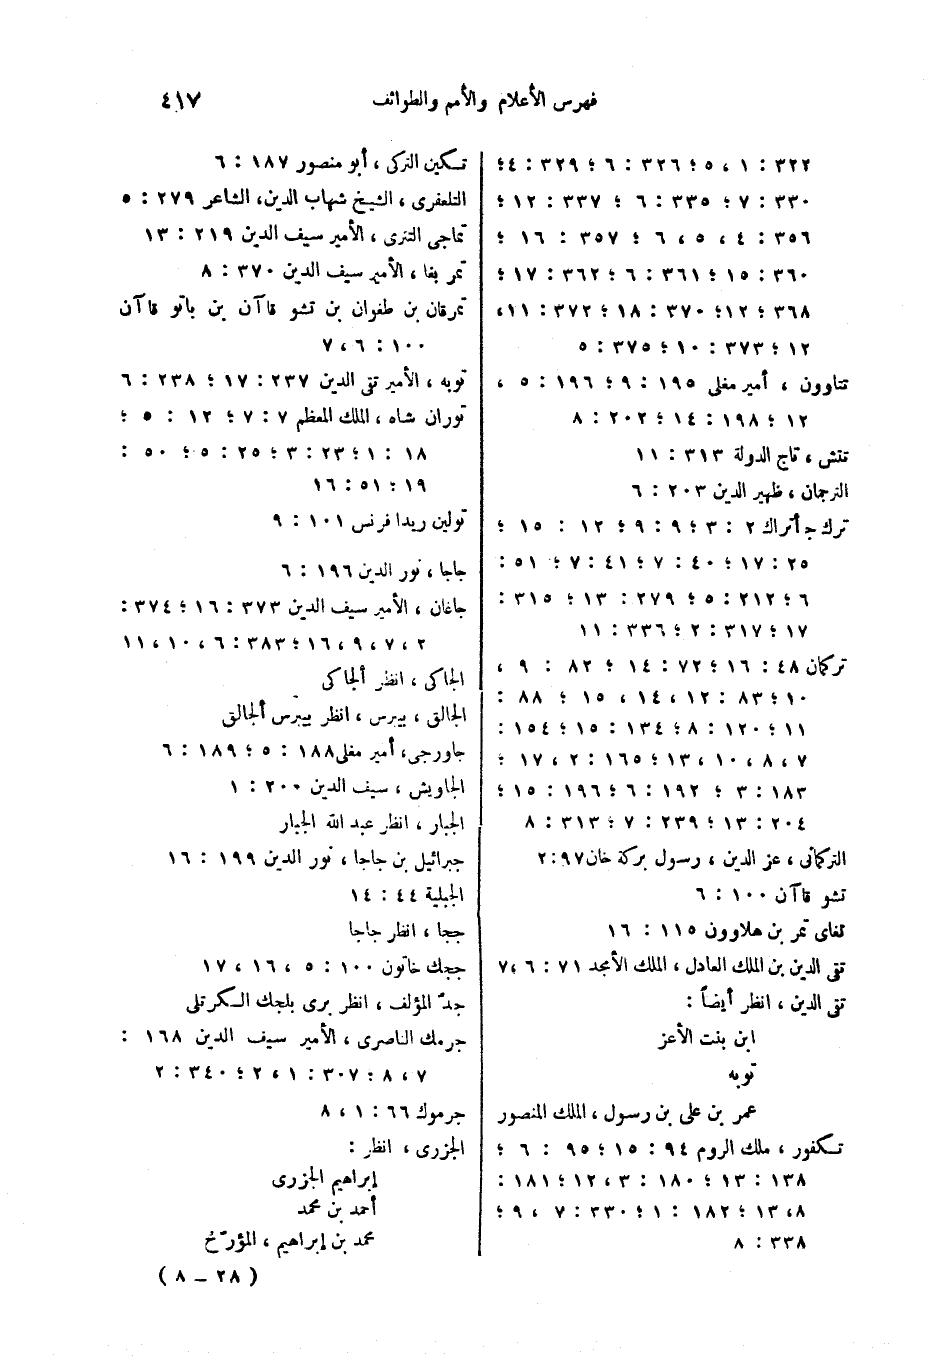 فهرس الأعلام والأمم والطوائف ٤١٧
٣٢٢ : ١ ، ٥ ؛ ٣٢٦ : ٦ ؛ ٣٢٩ : ٤ ؛
٣٣٠ : ٧ ؛ ٣٣٥ : ٦ ؛ ٣٣٧ : ١٢ ؛
٣٥٦ : ٤ ، ٥ ، ٦ ؛ ٣٥٧ : ١٦ ؛
٣٦٠ : ١٥ ؛ ٣٦١ : ٦ ؛ ٣٦٢ : ١٧ ؛
٣٦٨ : ١٢ ؛ ٣٧٠ : ١٨ ؛ ٣٧٢ : ١١ ،
١٢ ؛ ٣٧٣ : ١٠ ؛ ٣٧٥ : ٥
تتاوون ، أمير مغلى ١٩٥ : ٩ ؛ ١٩٦ : ٥ ،
١٢ ؛ ١٩٨ : ١٤ ؛ ٢٠٢ : ٨
تتش ، تاج الدولة ٣١٣ : ١١
الترجمان ، ظهير الدين ٢٠٣ : ٦
ترك ج أتراك ٢ : ٣ ؛ ٩ : ٩ ؛ ١٢ : ١٥ ؛
٢٥ : ١٧ ؛ ٤٠ : ٧ ؛ ٤١ : ٧ ؛ ٥١ :
٦ ؛ ٢١٢ : ٥ ؛ ٢٧٩ : ١٣ ؛ ٣١٥ :
١٧ ؛ ٣١٧ : ٢ ؛ ٣٣٦ : ١١
تركمان ٤٨ : ١٦ ؛ ٧٢ : ١٤ ؛ ٨٢ : ٩ ،
١٠ ؛ ٨٣ : ١٢ ، ١٤ ، ١٥ ؛ ٨٨ :
١١ ؛ ١٢٠ : ٨ ؛ ١٣٤ : ١٥ ؛ ١٥٤ :
٧ ، ٨ ، ١٠ ، ١٣ ؛ ١٦٥ : ٢ ، ١٧ ؛
١٨٣ : ٣ ؛ ١٩٢ : ٦ ؛ ١٩٦ : ١٥ ؛
٢٠٤ : ١٣ ؛ ٢٣٩ : ٧ ؛ ٣١٣ : ٨
التركمانى ، عز الدين ، رسول بركة خان ٩٧ : ٢
تشو قاآن ١٠٠ : ٦
تغاى تمر بن هلاوون ١١٥ : ١٦
تقى الدين بن الملك العادل ، الملك الأمجد ٧١ : ٦ ، ٧
تقى الدين ، انظر أيضاً :
ابن بنت الأعز
توبه
عمر بن على بن رسول ، الملك المنصور
تكفور ، ملك الروم ٩٤ : ١٥ ؛ ٩٥ : ٦ ؛
١٣٨ : ١٣ ؛ ١٨٠ : ٣ ، ١٢ ؛ ١٨١ :
٨ ، ١٣ ؛ ١٨٢ : ١ ؛ ٣٣٠ : ٧ ، ٩ ؛
٣٣٨ : ٨
تكين التركى ، أبو منصور ١٨٧ : ٦
التلعفرى ، الشيخ شهاب الدين ، الشاعر ٢٧٩ : ٥
تماجى التترى ، الأمير سيف الدين ٢١٩ : ١٣
تمر بغا ، الأمير سيف الدين ٣٧٠ : ٨
تمرقان بن طغوان بن تشو قاآن بن باتو قاآن
١٠٠ : ٦ ، ٧
توبه ، الأمير تقى الدين ٢٣٧ : ١٧ ؛ ٢٣٨ : ٦
توران شاه ، الملك المعظم ٧ : ٧ ؛ ١٢ : ٥ ؛
١٨ : ١ ؛ ٢٣ : ٣ ؛ ٢٥ : ٥ ؛ ٥٠ :
١٩ ؛ ٥١ : ١٦
تولين ريدا فرنس ١٠١ : ٩
جاجا ، نور الدين ١٩٦ : ٦
جاغان ، الأمير سيف الدين ٣٧٣ : ١٦ ؛ ٣٧٤ :
٢ ، ٧ ، ٩ ، ١٦ ؛ ٣٨٣ : ٦ ، ١٠ ، ١١
الجاكى ، انظر ألجاكى
الجالق ، بيبرس ، انظر بيبرس ألجالق
جاورجى ، أمير مغلى ١٨٨ : ٥ ؛ ١٨٩ : ٦
الجاويش ، سيف الدين ٢٠٠ : ١
الجبار ، انظر عبد الله الجبار
جبرائيل بن جاجا ، نور الدين ١٩٩ : ١٦
الجبلية ٤٤ : ١٤
ججا ، انظر جاجا
ججك خاتون ١٠٠ : ٥ ، ١٦ ، ١٧
جدّ المؤلف ، انظر برى بلجك الكرتلى
جرمك الناصرى ، الأمير سيف الدين ١٦٨ :
٧ ، ٨ ؛ ٣٠٧ : ١ ، ٢ ؛ ٣٤٠ : ٢
جرموك ٦٦ : ١ ، ٨
الجزرى ، انظر :
إبراهيم الجزرى
أحمد بن محمد
محمد بن إبراهيم ، المؤرّخ
( ٢٨ – ٨ )